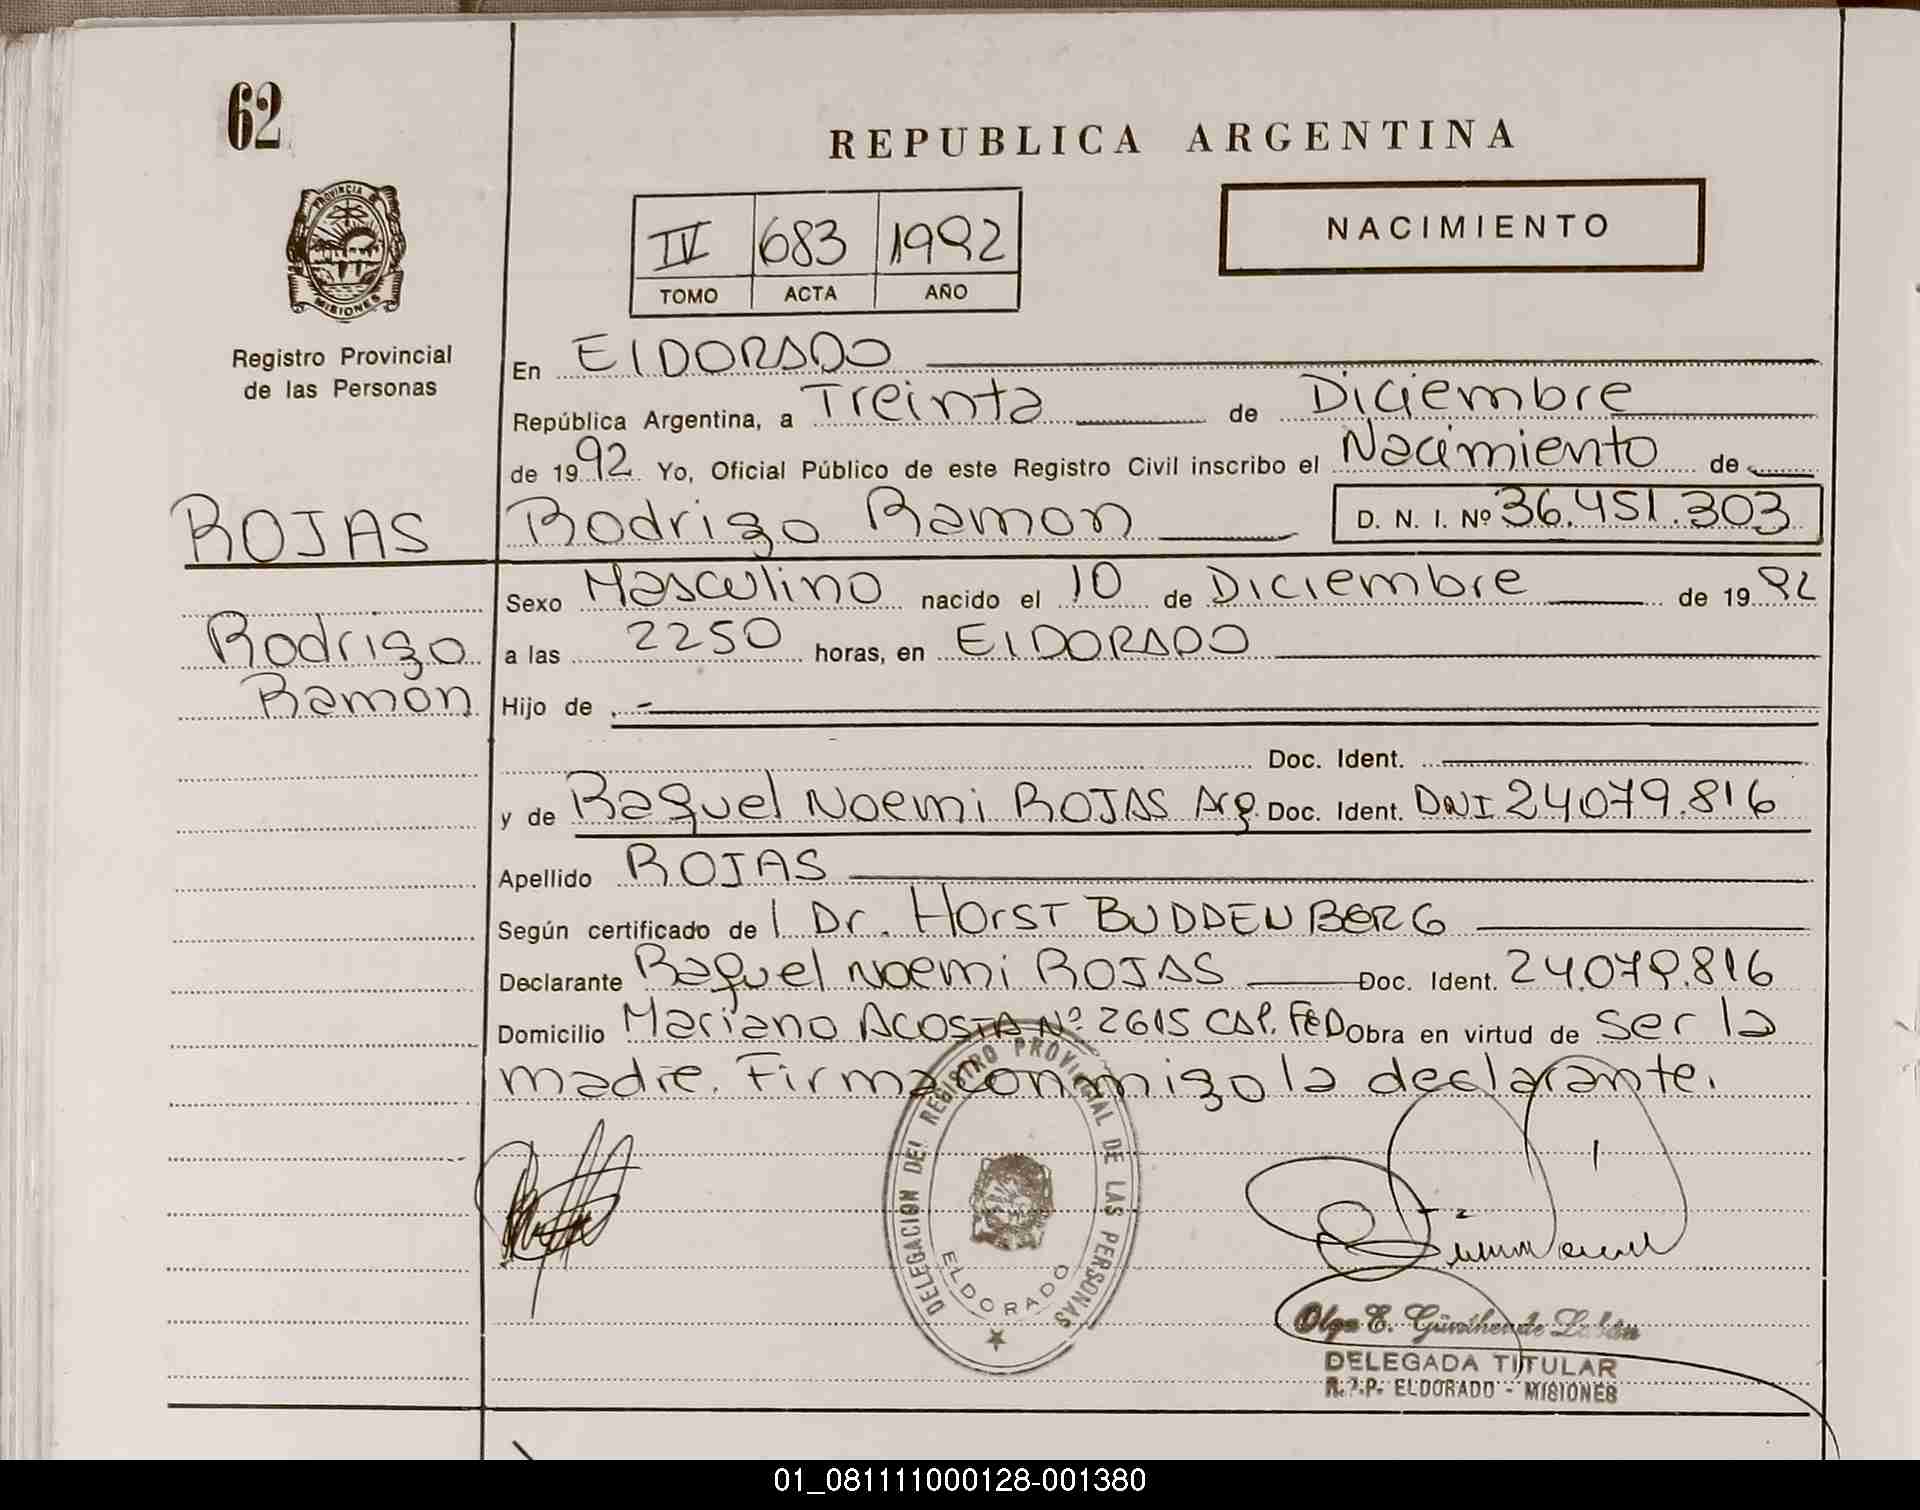 62
REPUBLICA ARGENTINA
PROVINCIA DE
MISIONES
Registro Provincial
de las Personas
IV 683 1992
TOMO ACTA AÑO
NACIMIENTO
En ElDORADO
República Argentina, a Treinta de Diciembre
de 1992 Yo, Oficial Público de este Registro Civil inscribo el Nacimiento de
ROJAS Rodrigo Ramon D. N. I. Nº 36.451.303
Sexo Masculino nacido el 10 de Diciembre de 1992
Rodrigo a las 2250 horas, en ElDORADO
Ramon Hijo de -
Doc. Ident.
y de Raquel Noemi ROJAS Arg. Doc. Ident. DNI 24079.816
Apellido ROJAS
Según certificado de l Dr. HorST BUDDENBERG
Declarante Raquel Noemi ROJAS Doc. Ident. 24.079.816
Domicilio Mariano ACOSTA Nº 2615 CAP. FED Obra en virtud de ser la
madre. Firma conmigo la declarante.
DELEGACION DEL REGISTRO PROVINCIAL DE LAS PERSONAS
ELDORADO
Olga E. Günther de
DELEGADA TITULAR
R.P.P. ELDORADO - MISIONES
01_081111000128-001380